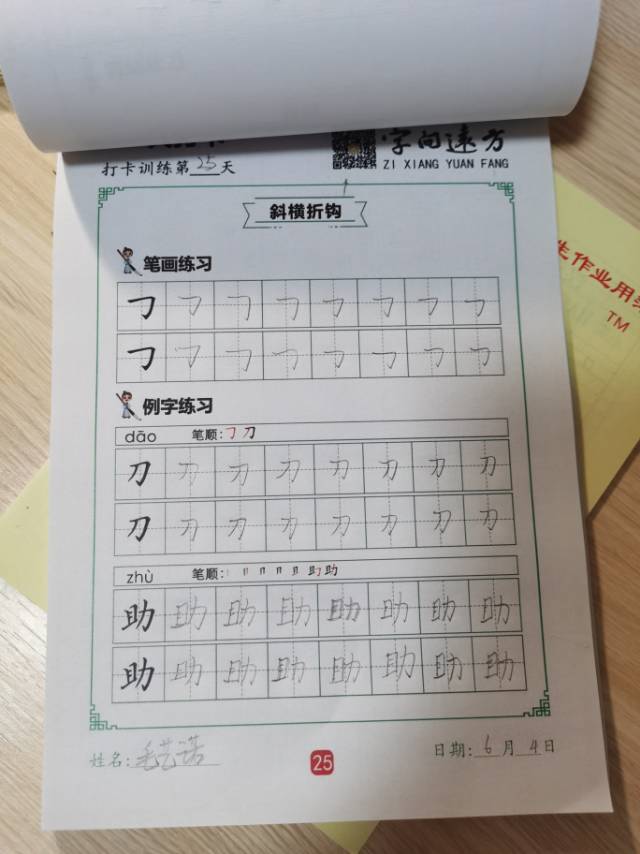 字向远方
打卡训练第25天
ZI XIANG YUAN FANG
斜横折钩
笔画练习
㇆ ㇆ ㇆ ㇆ ㇆ ㇆ ㇆ ㇆
㇆ ㇆ ㇆ ㇆ ㇆ ㇆ ㇆ ㇆
例字练习
dāo 笔顺:㇆刀
刀 刀 刀 刀 刀 刀 刀 刀
刀 刀 刀 刀 刀 刀 刀 刀
zhù 笔顺:
助 助 助 助 助 助 助 助
助 助 助 助 助 助 助 助
姓名:毛艺诺
25
日期:6月4日
生作业用
TM